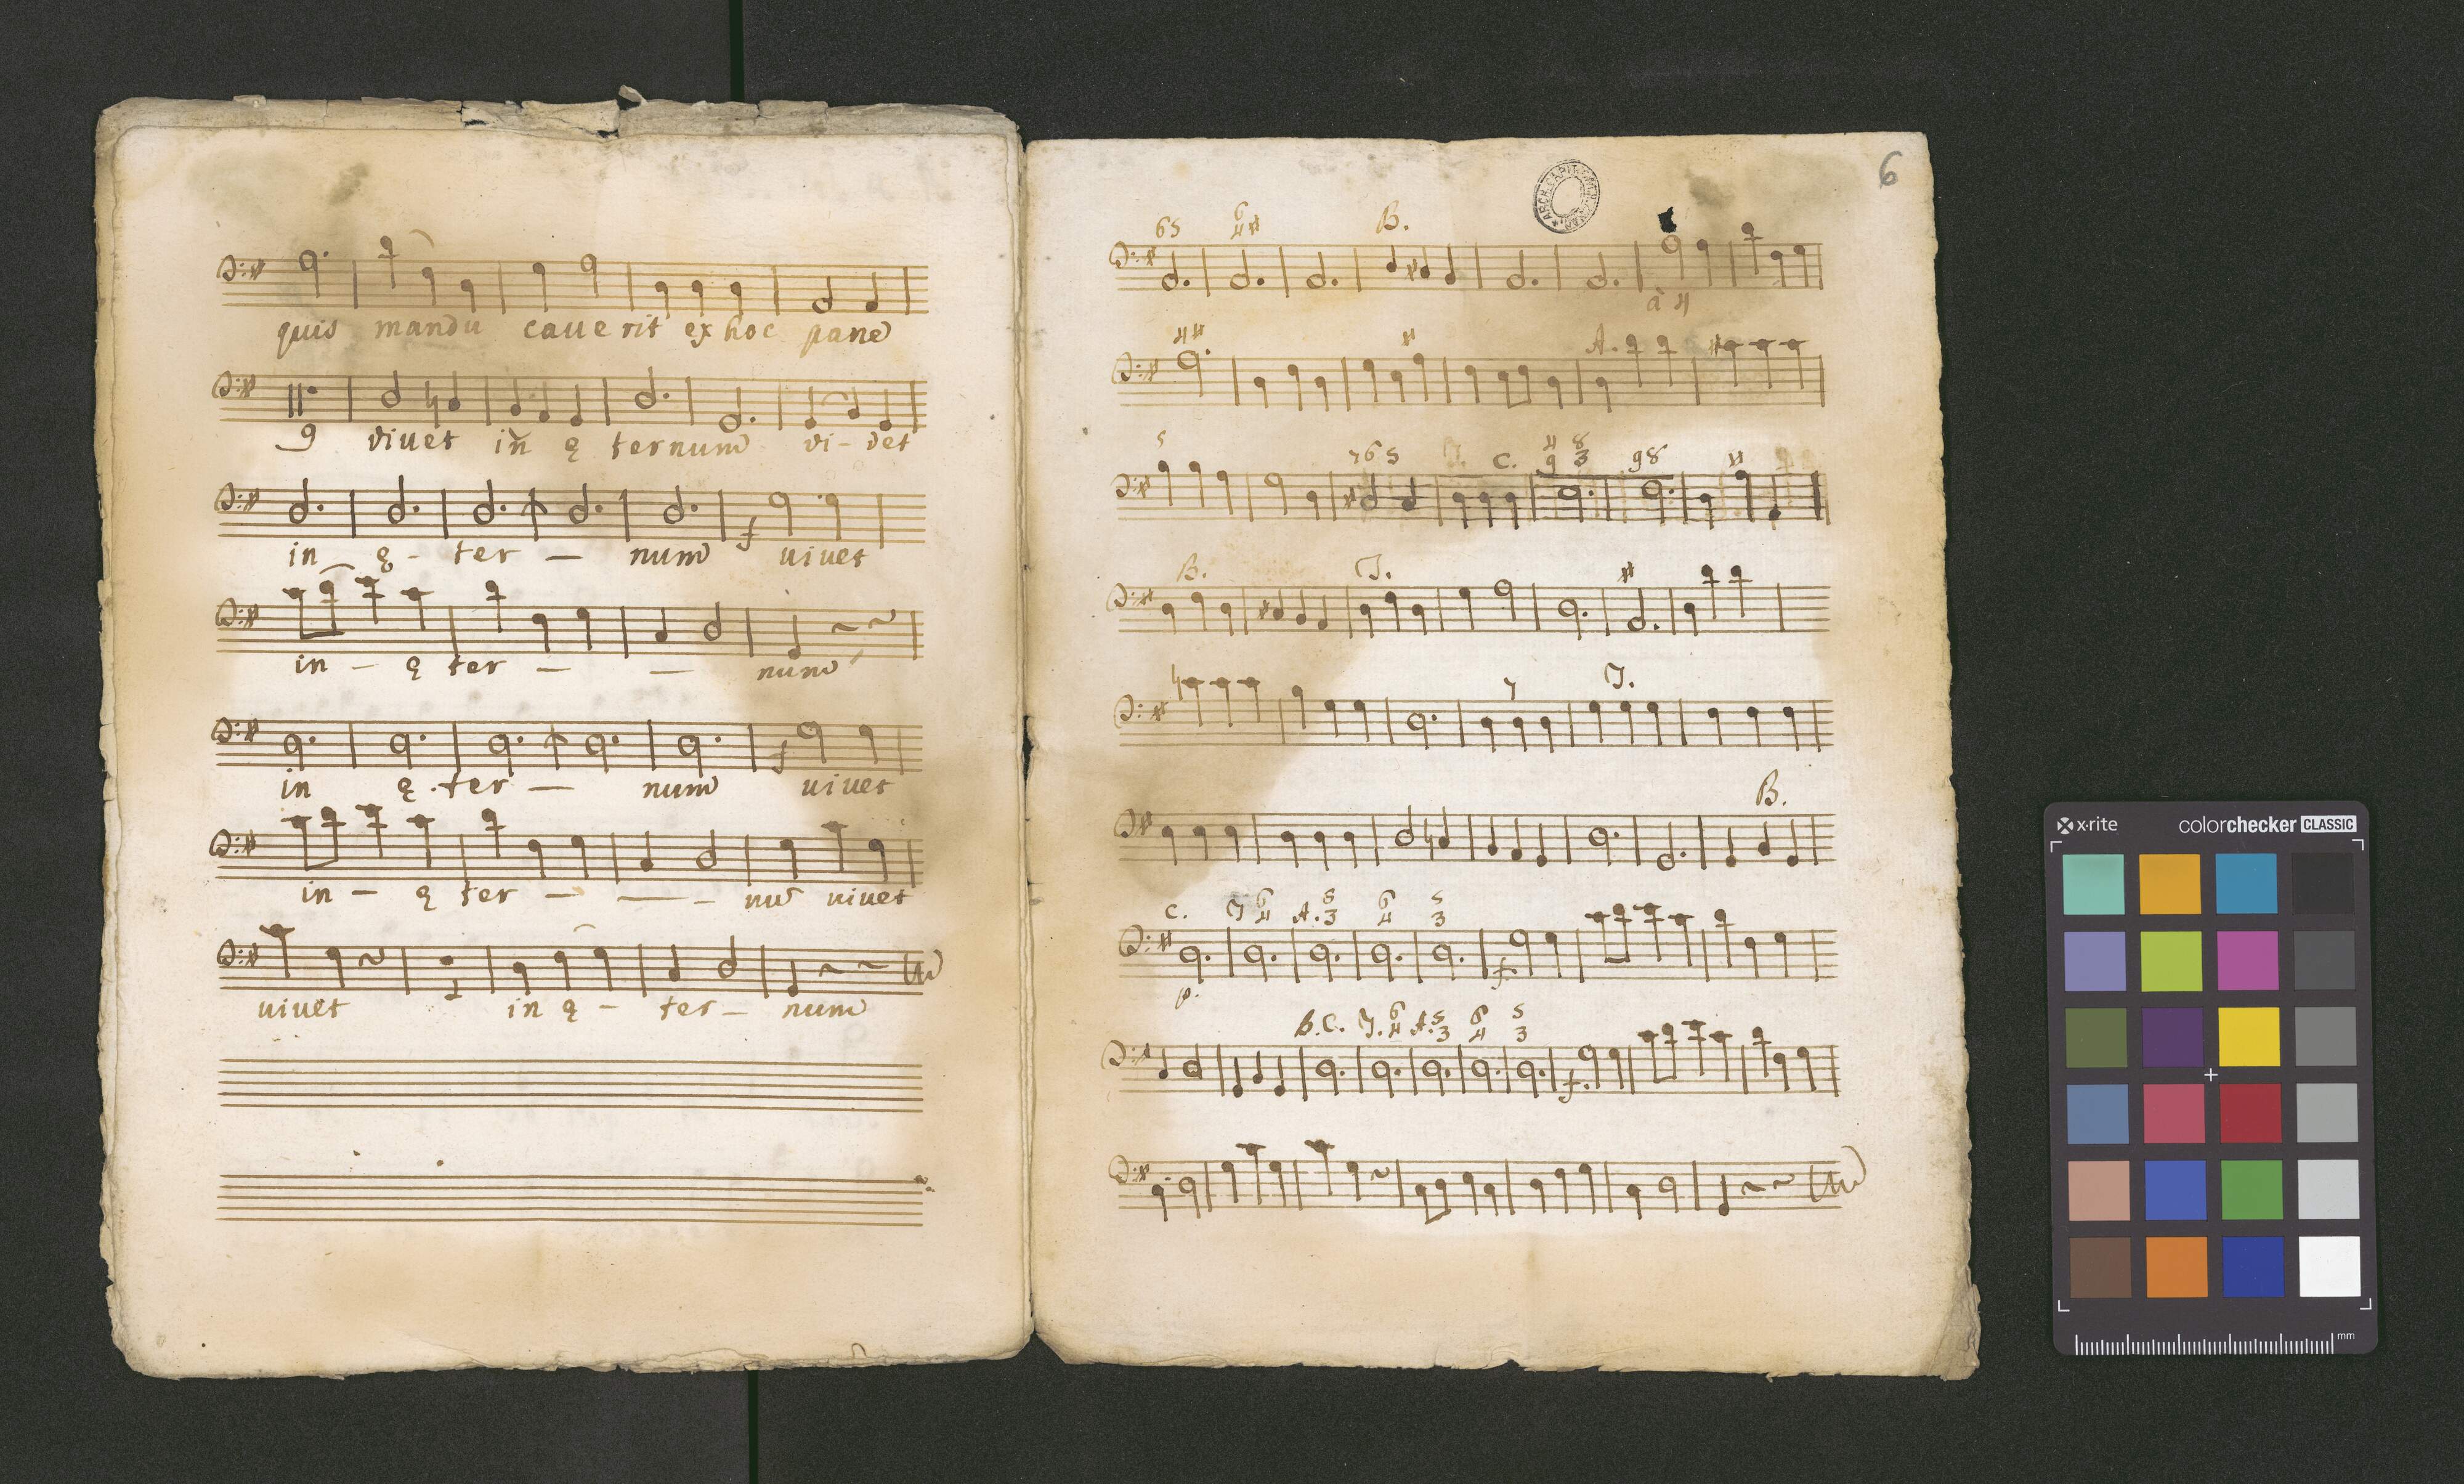 quis mandu caue rit ex hoc pane
9 viuet in ę ternum vi - vet
in ę - ter — num f uiuet
in — ę ter — — num
in ę - ter — num f uiuet
in — ę ter — — - nū uiuet
uiuet in ę - ter - num
6
65 6 4# B.
à 4
4# # A.
5 765 T. C. 4 8 9 3 98 #
B. T. #
7 T.
B.
C. T 6 4 A. 5 3 6 4 5 3
p. f.
B. C. T. 6 4 A. 5 3 6 4 5 3
f.
x·rite colorchecker CLASSIC
mm